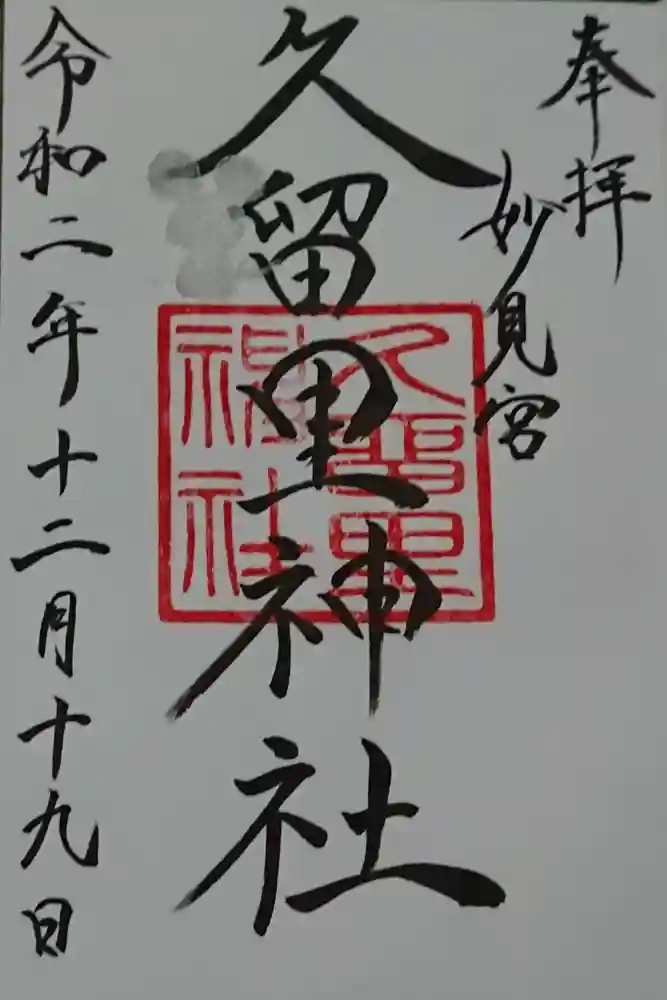 奉拝
妙見宮
久留里神社
久留里
神社
令和二年十二月十九日